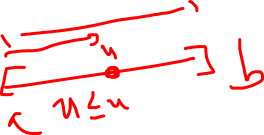 u
[ ] b
u ≤ u